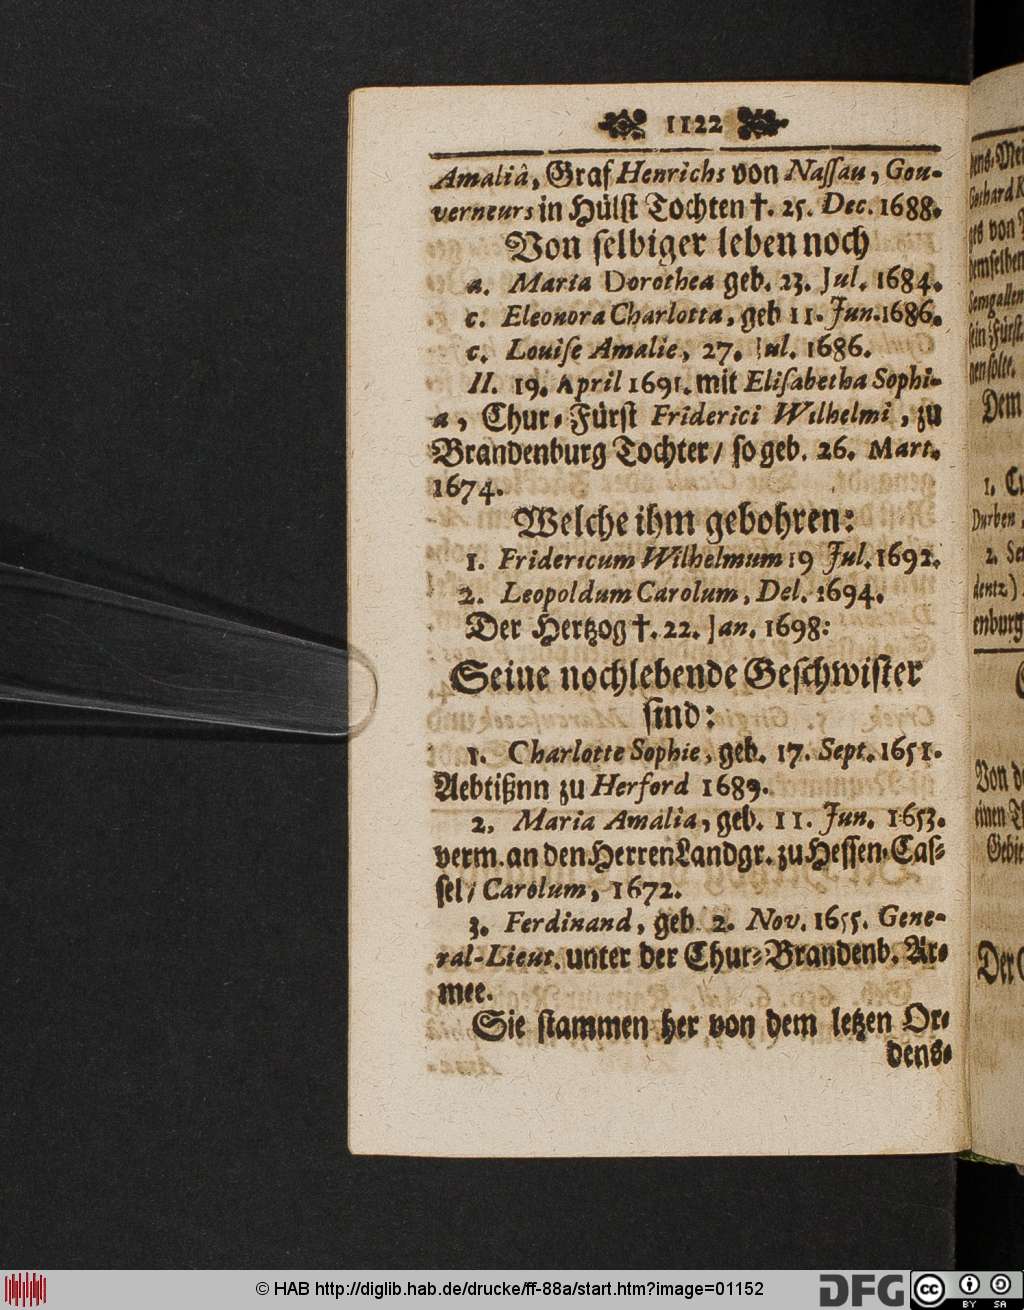 1122
Amaliâ, Graf Henrichs von Naſſau, Gou-
verneurs in Hülſt Tochten †. 25. Dec. 1688.
Von ſelbiger leben noch
a. Maria Dorothea geb. 23. Jul. 1684.
c. Eleonora Charlotta, geb 11. Jun. 1686.
c. Louiſe Amalie, 27. Jul. 1686.
II. 19. April 1691. mit Eliſabetha Sophi-
a, Chur-Fürſt Friderici Wilhelmi, zu
Brandenburg Tochter / ſo geb. 26. Mart.
1674.
Welche ihm gebohren:
1. Fridericum Wilhelmum 19 Jul. 1692.
2. Leopoldum Carolum, Del. 1694.
Der Hertzog †. 22. Jan. 1698:
Seine nochlebende Geſchwiſter
ſind:
1. Charlotte Sophie, geb. 17. Sept. 1651.
Aebtißnn zu Herford 1689.
2. Maria Amalia, geb. 11. Jun. 1653.
verm. an den Herren Landgr. zu Heſſen-Caſ-
ſel / Carolum, 1672.
3. Ferdinand, geb. 2. Nov. 1655. Gene-
ral-Lieut. unter der Chur-Brandenb. Ar-
mee.
Sie ſtammen her von dem letzen Or-
dens-
Dem
1. 
Durben
2. 
enburg
Von
einen
Der
© HAB http://diglib.hab.de/drucke/ff-88a/start.htm?image=01152
DFG
cc BY SA